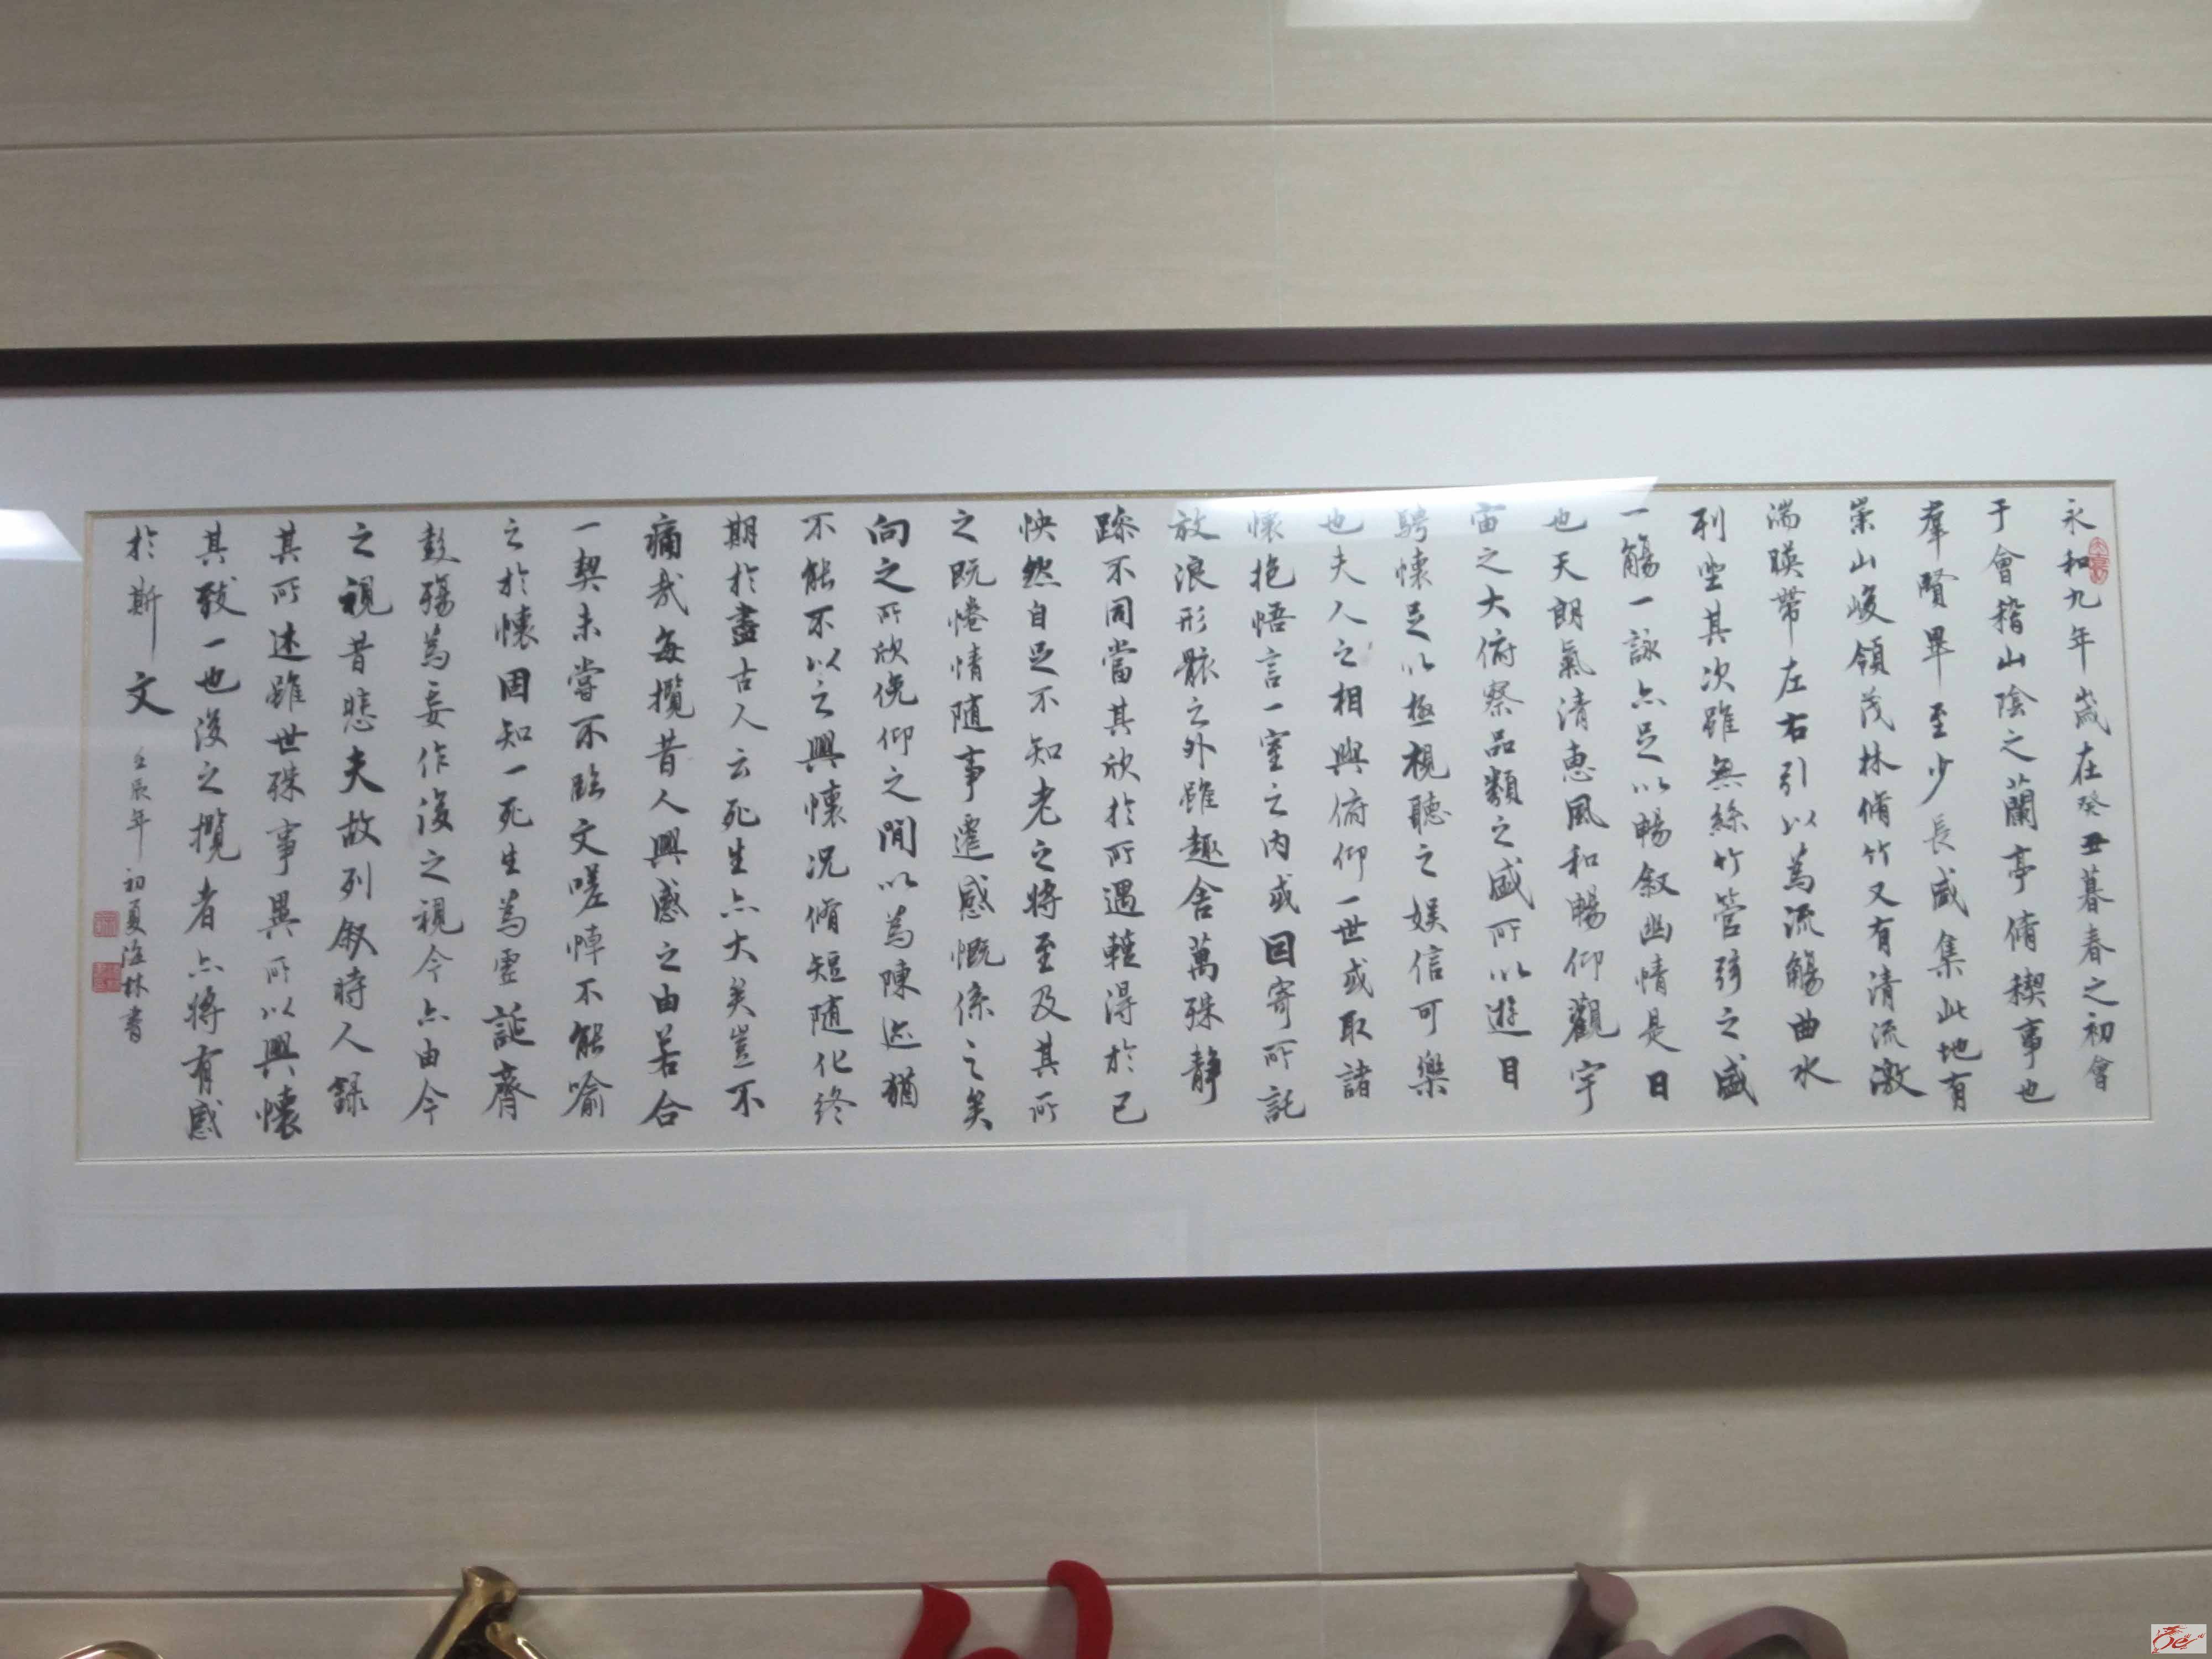 永和九年歲在癸丑暮春之初會
于會稽山陰之蘭亭脩禊事也
羣賢畢至少長咸集此地有
崇山峻領茂林脩竹又有清流激
湍暎帶左右引以為流觴曲水
列坐其次雖無絲竹管弦之盛
一觴一詠亦足以暢叙幽情是日
也天朗氣清惠風和暢仰觀宇
宙之大俯察品類之盛所以遊目
騁懷足以極視聽之娛信可樂
也夫人之相與俯仰一世或取諸
懷抱悟言一室之內或因寄所託
放浪形骸之外雖趣舍萬殊静
躁不同當其欣於所遇蹔得於己
怏然自足不知老之將至及其所
之既惓情随事遷感慨係之矣
向之所欣俛仰之間以為陳迹猶
不能不以之興懷況脩短随化終
期於盡古人云死生亦大矣豈不
痛哉每攬昔人興感之由若合
一契未嘗不臨文嗟悼不能喻
之於懷固知一死生為虛誕齊
彭殤為妄作後之視今亦由今
之視昔悲夫故列叙時人録
其所述雖世殊事異所以興懷
其致一也後之攬者亦將有感
於斯文
壬辰年初夏海林書